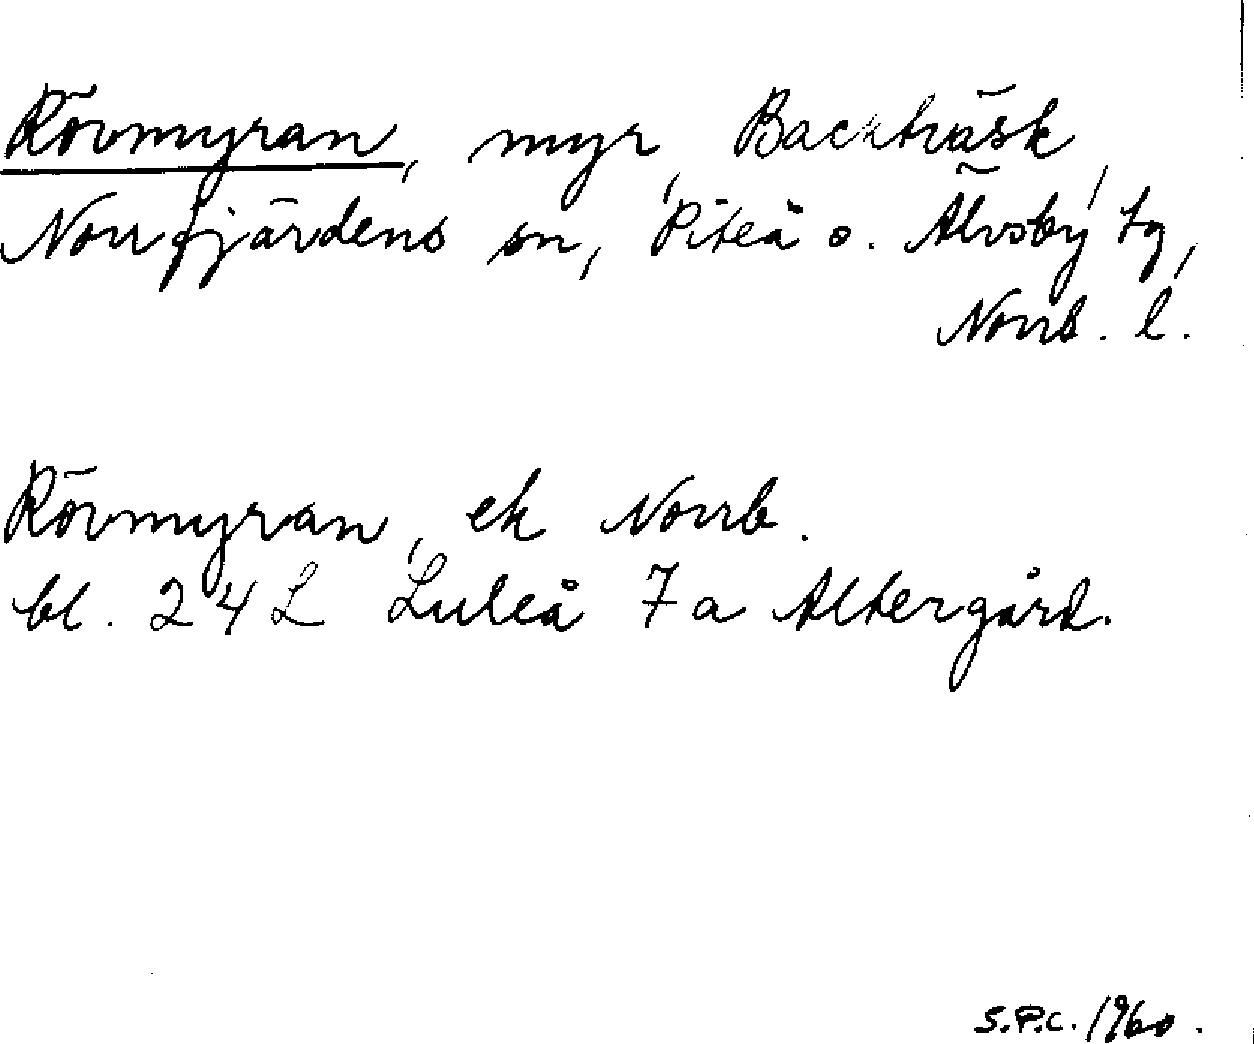 Rövmyran, myr, Backträsk,
Norrfjärdens sn, Piteå o. Älvsby tg,
Norrb. l.
Rövmyran, ek Norrb.
bl. 24 L Luleå 7a Altergård.
S.P.C. 1960.